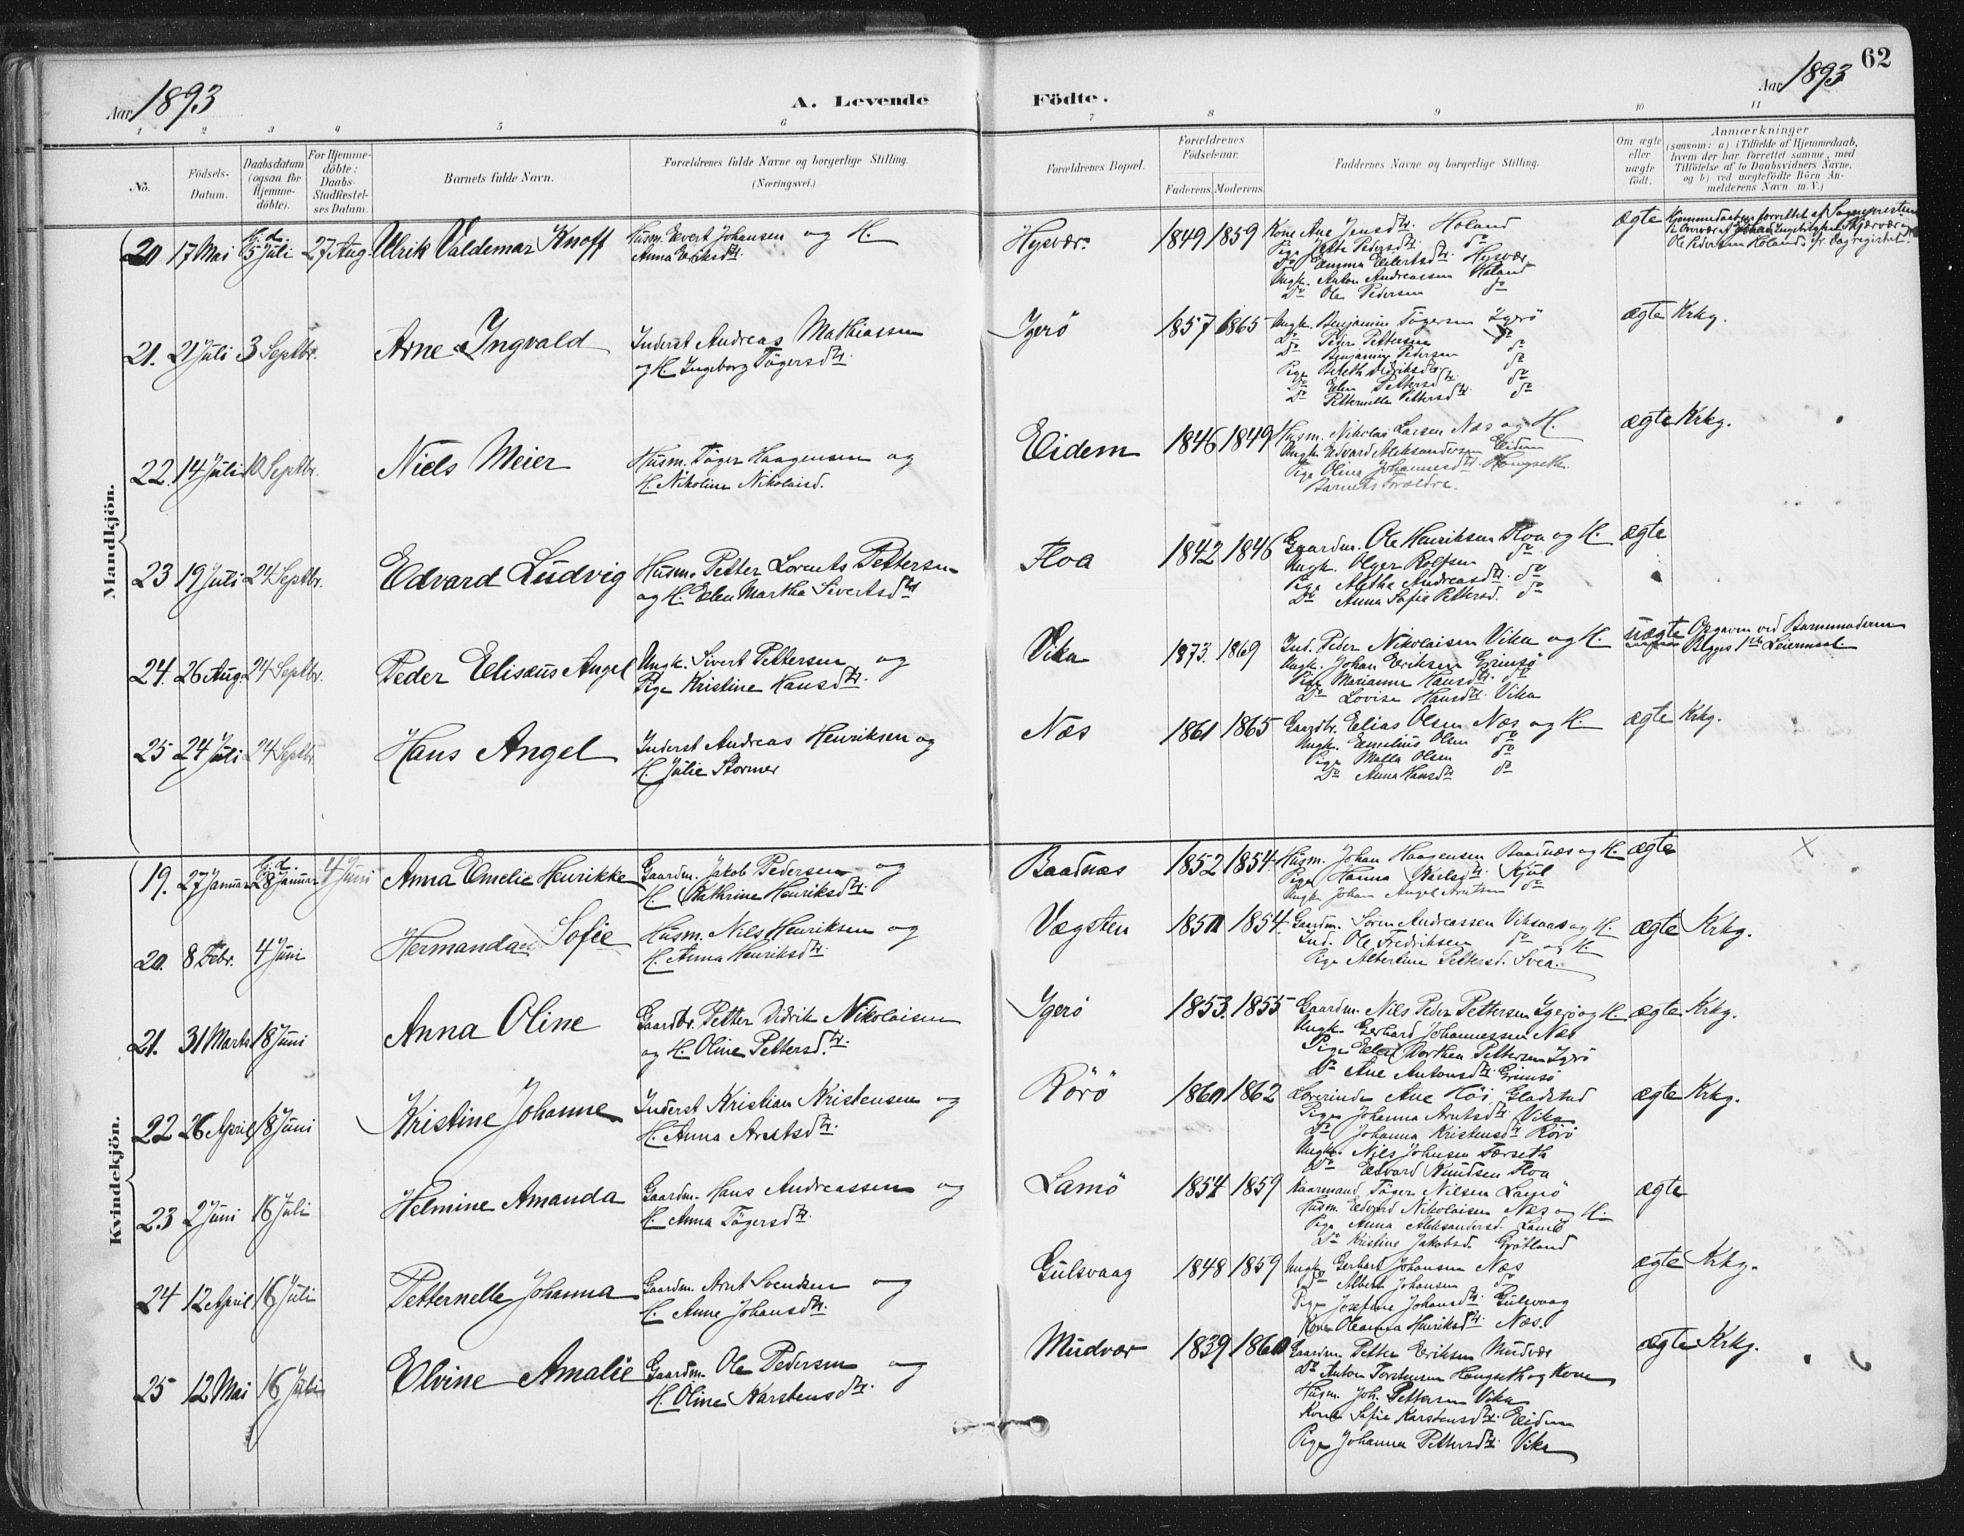 62
Aar 1893
A. Levende Födte.
Aar 1893
1 2 3 4 5 6 7 8 9 10 11
No.
Födsels-Datum.
Daabsdatum (ogsaa for Hjemmedöbte).
For Hjemmedöbte: Daabs-Stadfæstelses Datum.
Barnets fulde Navn.
Forældrenes fulde Navne og borgerlige Stilling. (Næringsvei.)
Forældrenes Bopæl.
Forældrenes Födselsaar.
Faderens. Moderens.
Faddernes Navne og borgerlige Stilling.
Om ægte eller uægte födt.
Anmærkninger
(saasom: a) i Tilfælde af Hjemmedaab, hvem der har forrettet samme, med Tilföielse af to Daabsvidners Navne, og b) ved uægtefödte Börn Anmelderens Navn m. V.)
Mandkjön.
20 17 Mai hj. d. 5 Juli 27 Aug Ulrik Valdemar Knoff
Husm. Evert Johansen og H.
Anna Eriksdtr.
Hysvær. 1849 1859
Kone Ane Jensdtr. Holand
Pige Jette Pedersdtr. do
Do Emma Eilertsdtr. Hysvær
Ungk. Anton Andreassen Holand
Do Ole Pedersen do
ægte
Hjemmedaaben forrettet af Sognepresten
21. 21 Juli 3 Septbr. Arne Ingvald
Inderst Andreas Mathiassen
og H. Ingeborg Tögersdtr.
Igerö 1857 1865
Ungk. Benjamin Tögersen Igerö
Do Peder Pettersen do
Do Benjamin Pedersen do
Pige Bereth Didriksdtr. do
Do Elen Pettersdtr. do
Do Petternella Pettersdtr. do
ægte Krkg.
22. 14 Juli 10 Septbr. Niels Meier
Husm. Töger Haagensen og
H. Nikoline Nikolaisd.
Eidem 1846 1849
Husm. Nikolai Larsen Næs og H.
Ungk. Edvard Aleksandersen Eidem
Pige Olina Johannesdtr. Hongseth.
Barnets Forældre.
ægte Krkg.
23 19 Juli 24 Septbr. Edvard Ludvig
Husm. Petter Lorents Pettersen
og H. Elen Martha Sivertsdtr
Floa 1842 1846
Gaardm. Ole Henriksen Floa og H.
Ungk. Olger Rolfsen do
Pige Alethe Andreasdtr. do
Do Anna Sofie Pettersd. do
ægte
24. 26 Aug. 24 Septbr. Peder Elisæus Angel
Ungk. Sivert Pettersen og
Pige Kristine Hansdtr.
Vika 1873. 1869
Ind. Peder Nikolaisen Vika og H.
Ungk. Johan Eriksen Grimsö
Pige Marianne Hansdtr. do
Do Lovise Hansdtr. Vika
uægte
Opgaven ved Barnemoderen
Begges 1ste Leiermaal.
25 24 Juli 24 Septbr. Hans Angel
Inderst Andreas Henriksen og
H. Julie Stormer
Næs 1861 1865
Gaardbr. Elias Olsen Næs og H.
Ungk. Emelius Olsen do
Pige Malla Olsen do
Do Anna Hansdtr do
ægte Krkg.
Kvindekjön.
19. 27 Januar hj. d. 28 Januar 4 Juni Anna Emelie Henrikke
Gaardm. Jakob Pedersen og
H. Kathrine Henriksdtr.
Baadnæs 1852 1854
Husm. Johan Haagensen Baadnæs og H.
Pige Hanna Karlsdtr. Kjul
Ungk Johan Angel Arntsen do
ægte ×
20. 8 Febr. 4 Juni Hermanda Sofie
Husm. Nils Henriksen og
H. Anna Henriksdtr.
Vægsten 1850 1854.
Gaardm. Sören Andreassen Viksaas og H.
Ind. Ole Fredriksen do og H.
Pige Albertine Pettersd. Svea.
ægte Krkg.
21. 31 Marts 18 Juni Anna Oline
Gaardbr. Petter Didrik Nikolaisen
og H. Oline Pettersdtr.
Igerö 1853. 1855
Gaardm. Nils Peder Pettersen Igerö og H.
Ungk. Gerhard Johannessen Næs
Pige Elen Dorthea Pettersen Igerö
Do Ane Antonsdtr. Grimsö
ægte Krkg.
22 26 April 18 Juni Kristine Johanne
Inderst Kristian Kristensen og
H. Anna Arntsdtr.
Rörö 1860 1862
Lærerinde Ane Höi Gladstad
Pige Johanna Arntsdtr. Vika
Do Johanna Kristensdtr Rörö
Ungk. Nils Johnsen Færseth
Do Edvard Knudsen Floa
ægte Krkg.
23 2 Juni 16 Juli Helmine Amanda
Gaardm. Hans Andreassen og
H. Anna Tögersdtr.
Lamö 1854 1859
Kaarmand Töger Nilsen Lamö
Husm. Edvard Nikolaisen Næs og H.
Pige Anna Aleksandersd. Lamö
Do Kristine Jakobsd. Grötland
ægte
24 12 April 16 Juli Petternelle Johanna
Gaardm. Arnt Svendsen og
H. Anne Johansdtr.
Gulsvaag 1848 1859
Ungk. Gerhart Johansen Næs
Do Albert Johansen do
Pige Josefine Johansdtr. Gulsvaag
Kone Oleanna Henriksdtr. Næs.
ægte Krkg.
25 12 Mai 16 Juli Elvine Amalie
Gaardm. Ole Pedersen og
H. Oline Karstensdtr.
Mudvær 1839 1860
Gaardm. Petter Eriksen Mudvær
Do Anton Torstensen Hongseth og Kone
Husm. Joh. Pettersen Vika
Kone Sofie Karstensdtr. Eidem
Pige Johanna Pettersdtr. Vika
ægte Krkg.